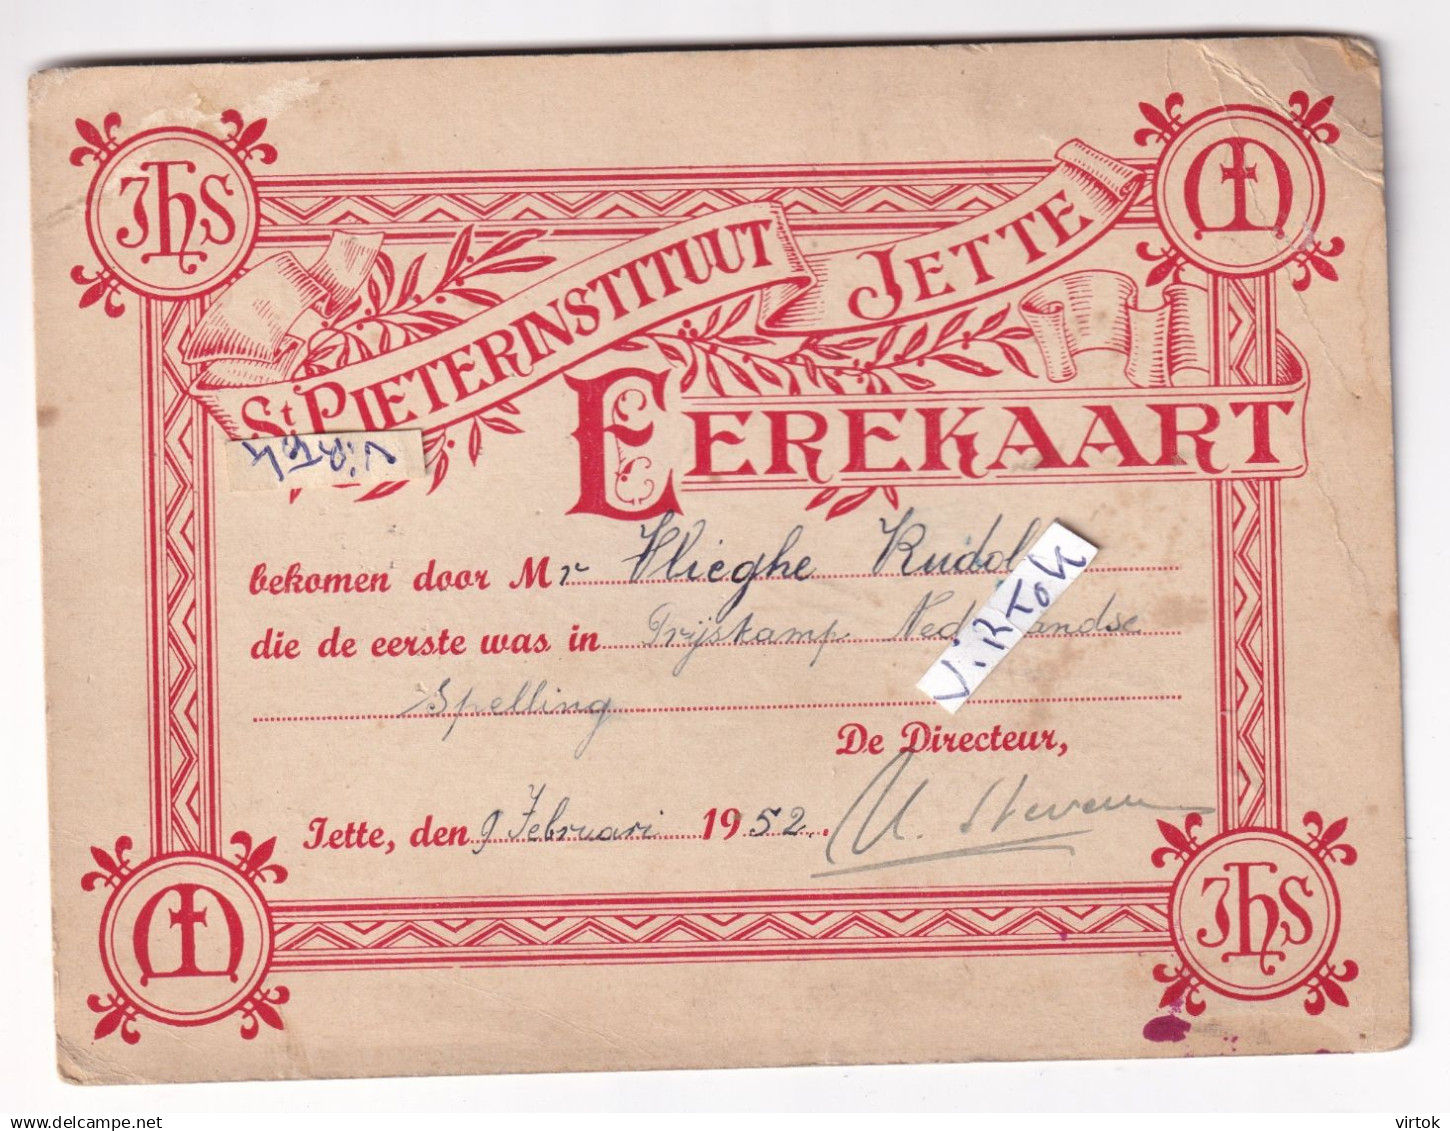 JhS
M
St PIETERINSTITUUT JETTE
EEREKAART
V.RTOK
bekomen door Mr Vlieghe Rudol
V.RTOK
die de eerste was in Prijskamp Nederlandse
Spelling
De Directeur,
Jette, den 9 Februari 1952.
M
JhS
virtok
delcampe.net